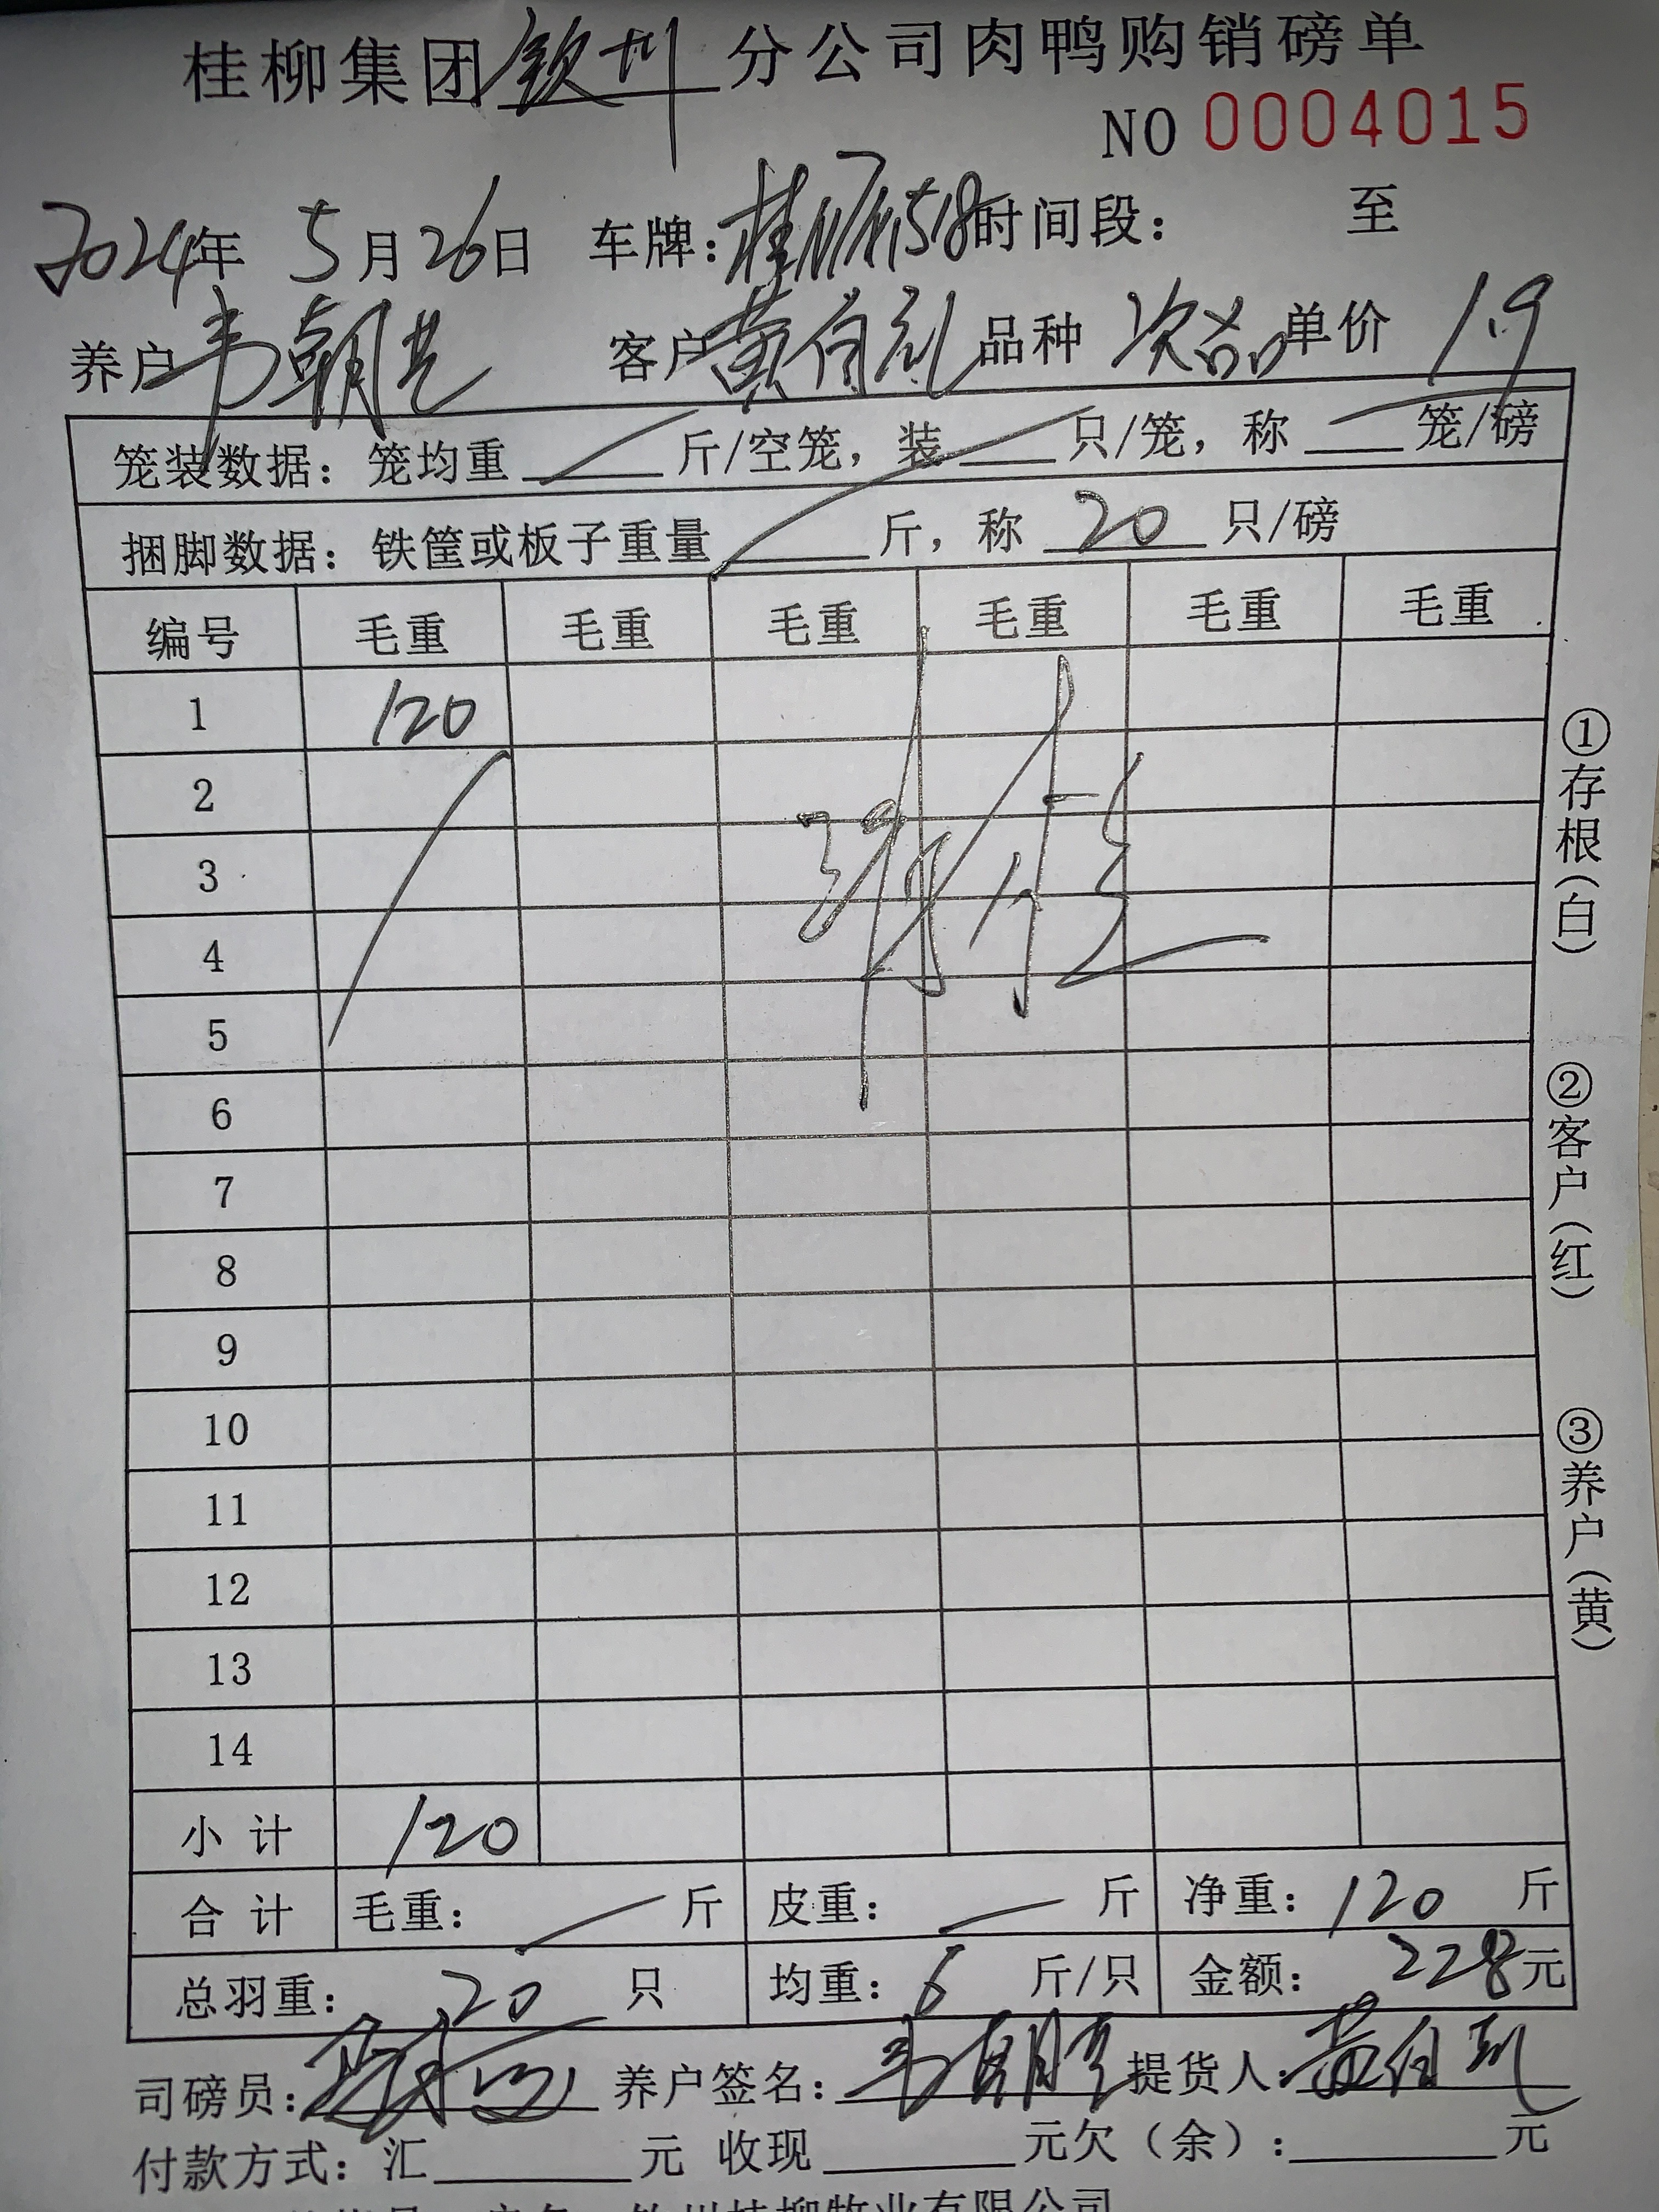 桂柳集团钦州分公司肉鸭购销磅单
NO 0004015
2024年 5月26日 车牌:桂N 518时间段: 至
养户韦朝 客户黄 品种 次品 单价 1.9
笼装数据: 笼均重 斤/空笼, 装 只/笼, 称 笼/磅
捆脚数据: 铁筐或板子重量 斤, 称 20 只/磅
编号 毛重 毛重 毛重 毛重 毛重 毛重
1 120
2
3
4
5
6
7
8
9
10
11
12
13
14
小计 120
合计 毛重: 斤 皮重: 斤 净重: 120 斤
总羽重: 20 只 均重: 6 斤/只 金额: 228元
司磅员: 养户签名: 韦朝 提货人: 黄
付款方式: 汇 元 收现 元欠(余): 元
钦州桂柳牧业有限公司
①存根(白)
②客户(红)
③养户(黄)